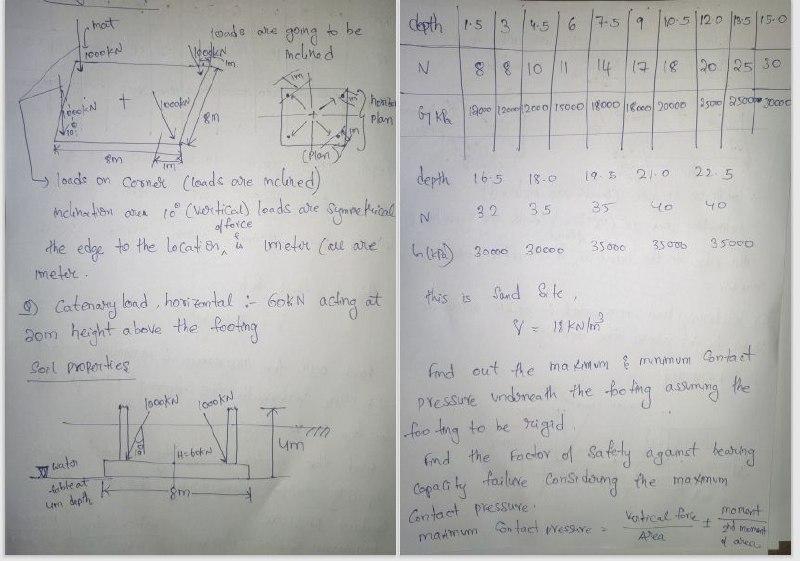 mat
loads are going to be
inclined
1000kN
1000kN
1m
1000kN
1000kN
10°
8m
8m
1m
1m
1m
1m
horizontal
plan
(Plan)
loads on corner (loads are inclined)
inclination area 10° (vertical) loads are symmetrical
of force
the edge to the location, is 1meter (all are
meter.
Q) Catenary load, horizontal :- 60kN acting at
20m height above the footing
Soil properties
1000kN 1000kN
10°
H=60kN
4m
water
table at
4m depth
8m
depth 1.5 3 4.5 6 7.5 9 10.5 12.0 13.5 15.0
N 8 8 10 11 14 17 18 20 25 30
G, kPa 12000 12000 12000 15000 18000 18000 20000 25000 25000 30000
depth 16.5 18.0 19.5 21.0 22.5
N 32 35 35 40 40
G(kPa) 30000 30000 35000 35000 35000
this is Sand Site,
γ = 18 KN/m³
Find out the maximum & minimum Contact
pressure underneath the footing assuming the
footing to be rigid.
Find the Factor of Safety against bearing
Capacity failure Considering the maximum
Contact pressure.
maximum Contact pressure = Vertical force / Area ± moment / 2nd moment of area.